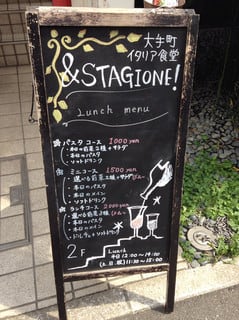 大手町
イタリア食堂
&STAGIONE!
Lunch menu
パスタコース 1000yen
・本日の前菜2種+サラダ
・本日のパスタ
・ソフトドリンク
ミニコース 1500yen
・選べる前菜2種+サラダ
・本日のパスタ
・本日のメイン
・ソフトドリンク
ランチコース 2000yen
・選べる前菜3種
・本日のパスタ
・本日のメイン
・ドルチェ+ソフトドリンク
2F
Lunch
平日 12:00~14:00
(土.日.祝) 11:30~15:00